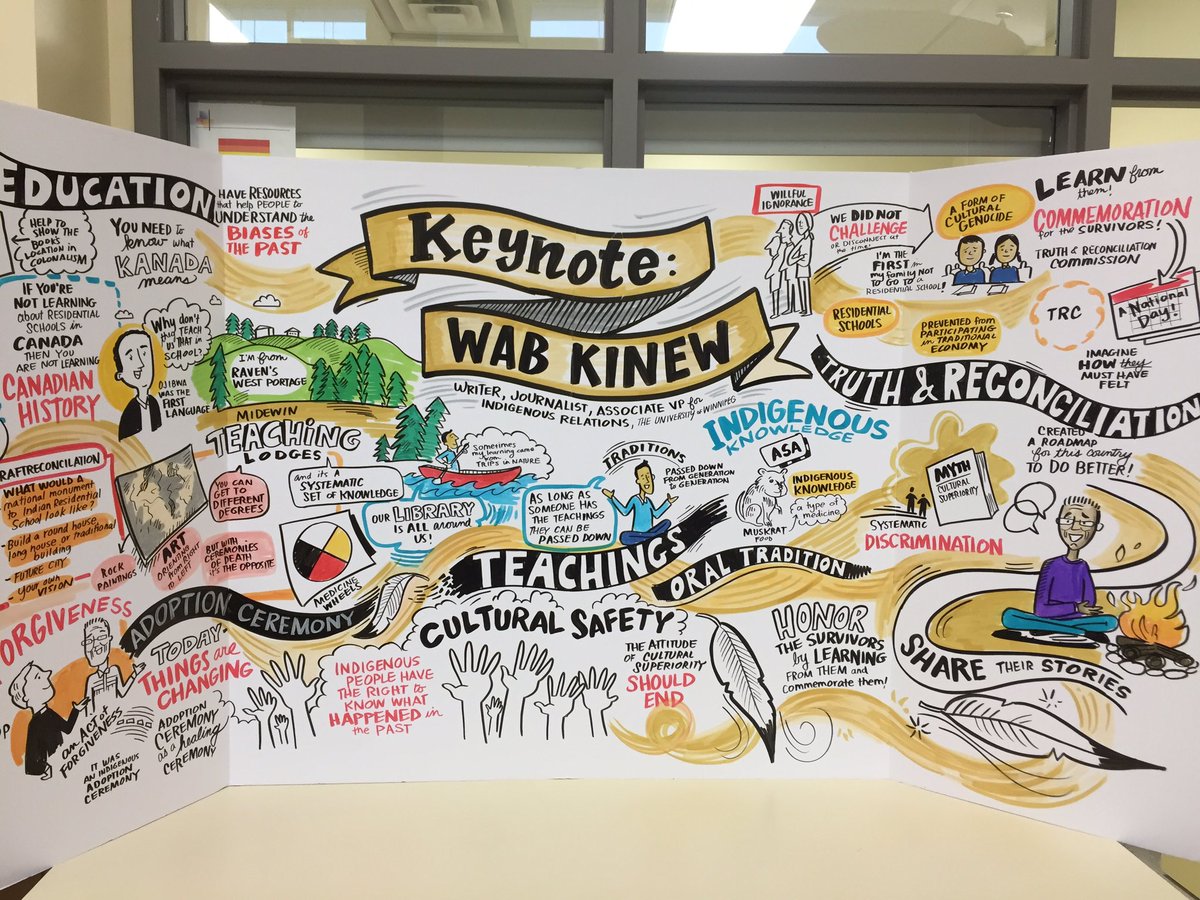 EDUCATION
HELP TO
SHOW THE
BOOKS
LOCATION IN
COLONIALISM
YOU NEED to
know what
KANADA
means
IF YOU'RE
NOT LEARNING
about RESIDENTIAL
SCHOOLS in
CANADA
THEN YOU
ARE NOT LEARNING
CANADIAN
HISTORY
Why don't
they TEACH
US THAT IN
SCHOOL?
OJIBWA
WAS THE
FIRST
LANGUAGE
RAFTRECONCILATION
WHAT WOULD A
national monument
to Indian Residential
School look like?
- Build a round house,
long house or traditional
building
- FUTURE CITY
- YOUR OWN
VISION
ROCK
PAINTINGS
ART
ORIENTING
FROM RIGHT
TO LEFT
FORGIVENESS
an ACT of
FORGIVENESS
IT WAS
AN INDIGENOUS
ADOPTION
CEREMONY
TODAY-
THINGS are
CHANGING
ADOPTION
CEREMONY
as a healing
CEREMONY
HAVE RESOURCES
that help PEOPLE to
UNDERSTAND the
BIASES of
THE PAST
Keynote:
WAB KINEW
WRITER, JOURNALIST, ASSOCIATE VP for
INDIGENOUS RELATIONS, THE UNIVERSITY of WINNIPEG
I'M from
RAVEN'S
WEST PORTAGE
MIDEWIN
TEACHING
LODGES
and its A
SYSTEMATIC
SET OF KNOWLEDGE
YOU CAN
GET TO
DIFFERENT
DEGREES
BUT WITH
CEREMONIES
OF DEATH
it's THE OPPOSITE
MEDICINE
WHEELS
ADOPTION CEREMONY
Sometimes
my learning came
from
TRIPS in NATURE
OUR LIBRARY
IS ALL around
US!
AS LONG AS
SOMEONE HAS
THE TEACHINGS
THEY CAN BE
PASSED DOWN
TRADITIONS
PASSED DOWN
FROM GENERATION
to GENERATION
INDIGENOUS
KNOWLEDGE
ASA
INDIGENOUS
KNOWLEDGE
a type of
medicine
MUSKRAT
FOOD
TEACHINGS
ORAL TRADITION
CULTURAL SAFETY
INDIGENOUS
PEOPLE HAVE
THE RIGHT to
KNOW WHAT
HAPPENED in
the PAST
THE ATTITUDE
OF CULTURAL
SUPERIORITY
SHOULD
END
HONOR
THE SURVIVORS
by LEARNING
FROM THEM and
commemorate them!
WILLFUL
IGNORANCE
WE DID NOT
CHALLENGE
OR DISCONNECT at
the time!
I'M THE
FIRST in
my FAMILY NOT
TO GO TO a
RESIDENTIAL SCHOOL!
A FORM OF
CULTURAL
GENOCIDE
RESIDENTIAL
SCHOOLS
PREVENTED from
PARTICIPATING
in TRADITIONAL
ECONOMY
LEARN from
them!
COMMEMORATION
for the SURVIVORS!
TRUTH & RECONCILIATION
COMMISSION
TRC
A National
Day!
IMAGINE
HOW they
MUST HAVE
FELT
TRUTH & RECONCILIATION
CREATED
A ROADMAP
for this COUNTRY
TO DO BETTER!
MYTH
CULTURAL
SUPERIORITY
SYSTEMATIC
DISCRIMINATION
SHARE THEIR STORIES